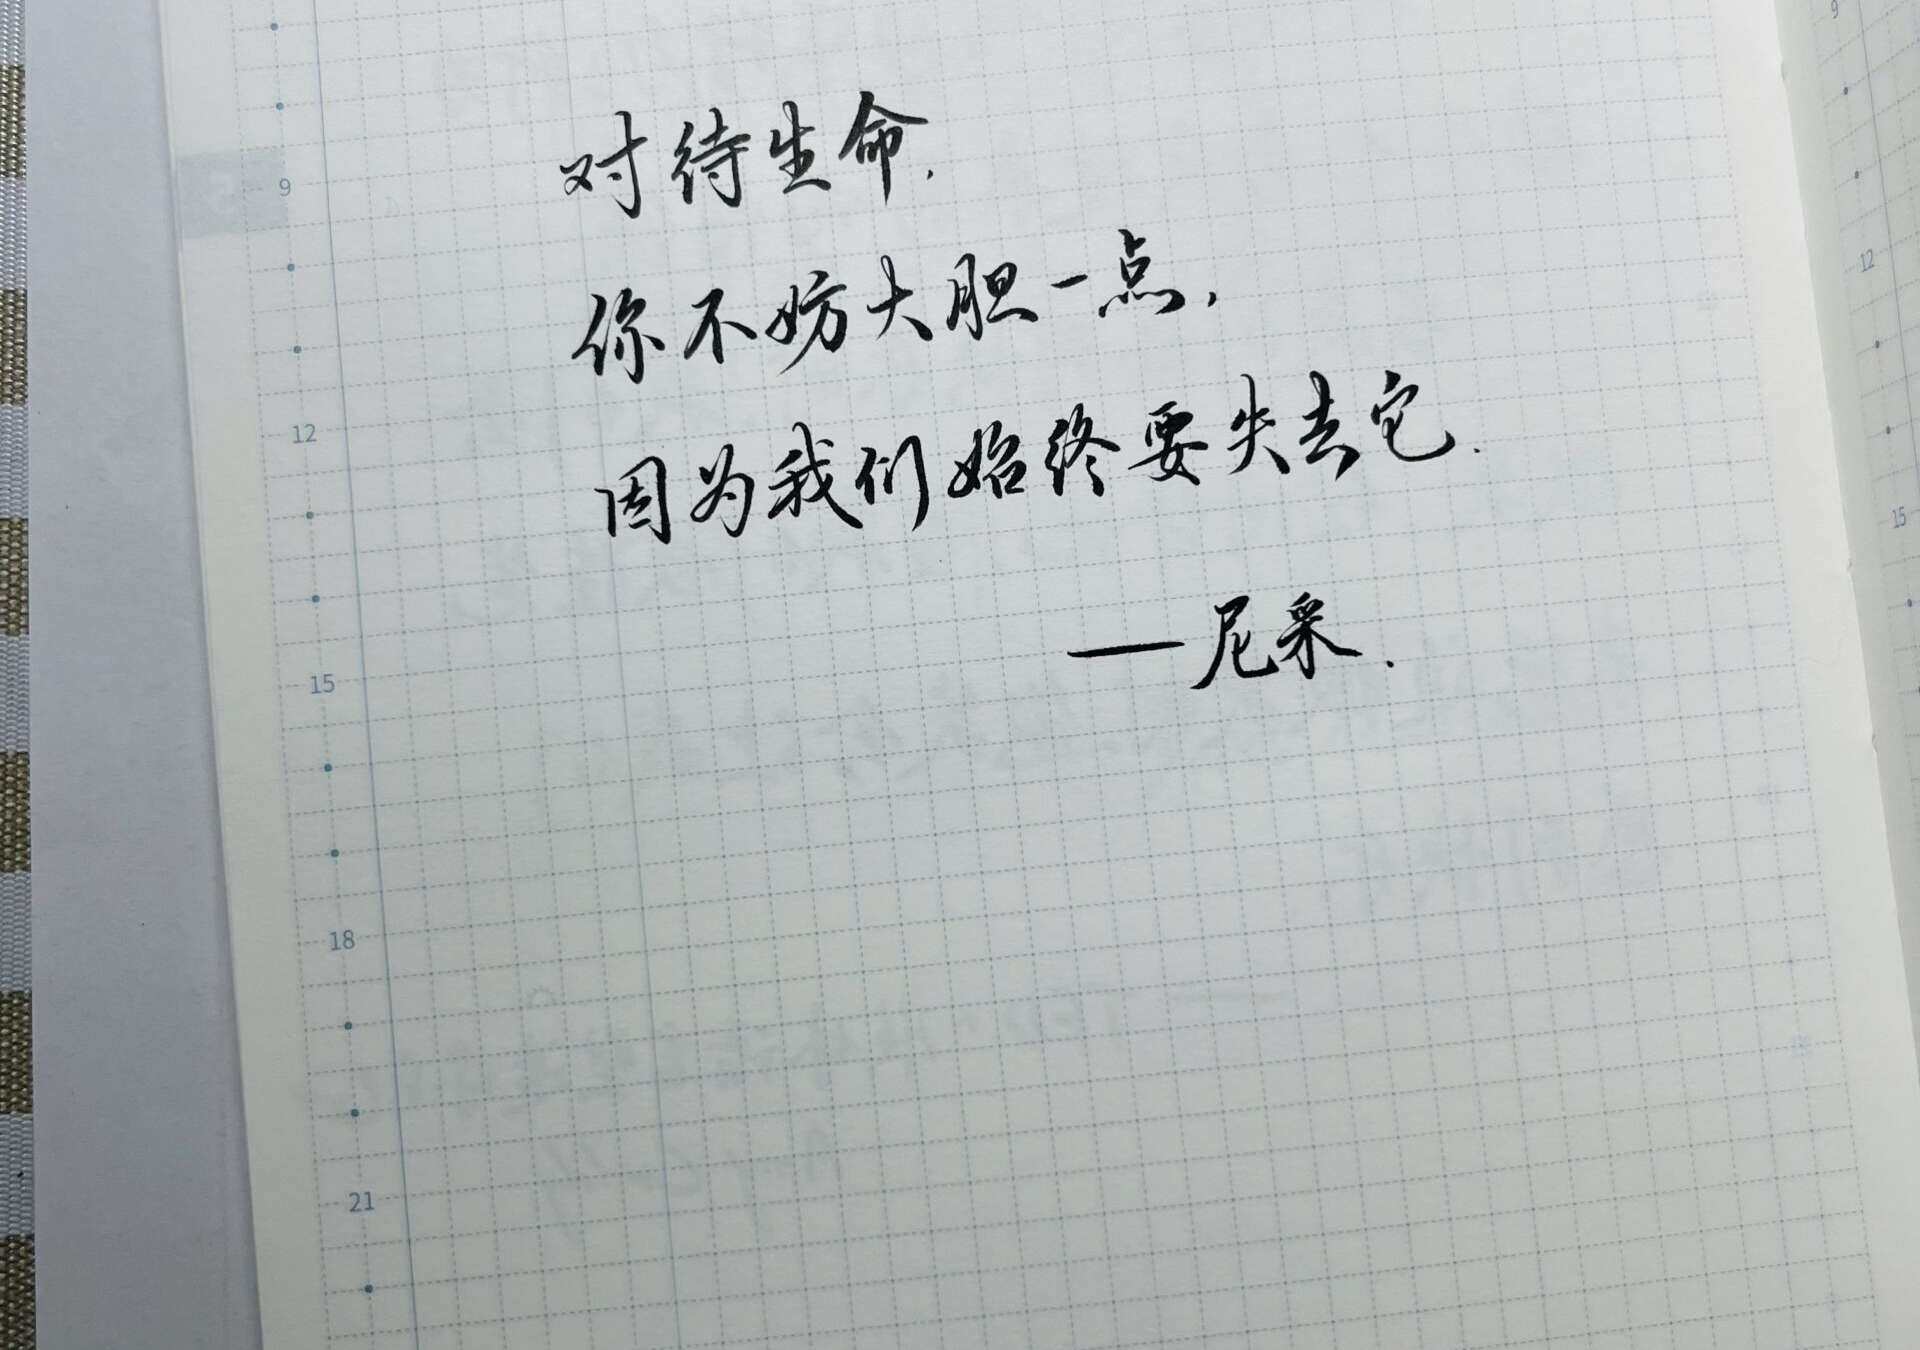 对待生命.
你不妨大胆一点,
因为我们始终要失去它.
——尼采.
9
12
15
18
21
9
12
15